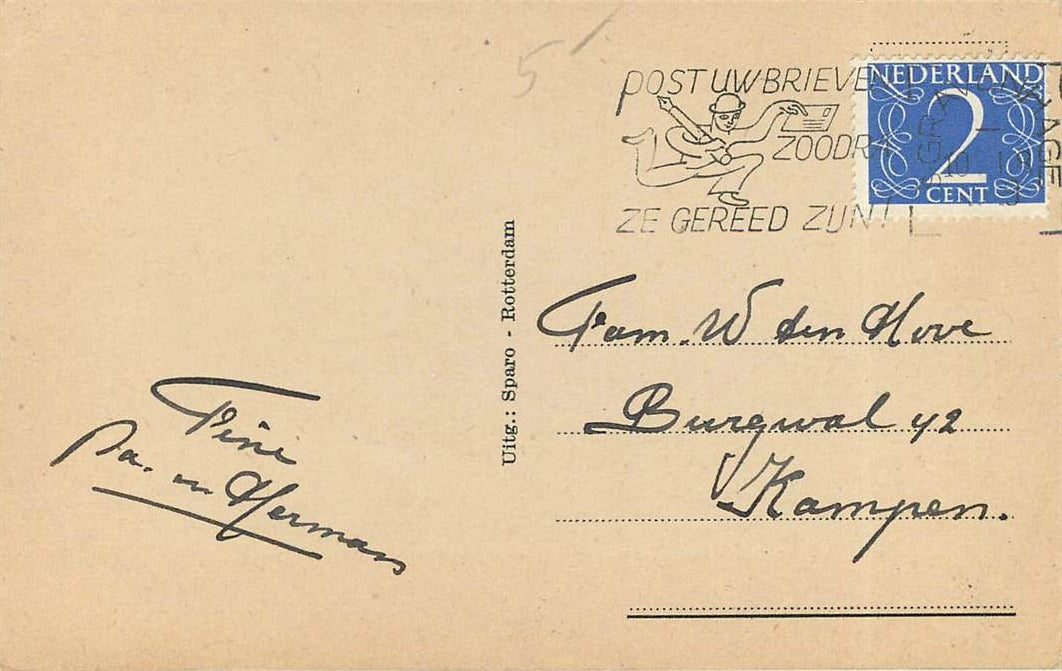 5
POST UW BRIEVEN
ZOODRA
ZE GEREED ZIJN!
NEDERLAND
2
CENT
Uitg.: Sparo - Rotterdam
Fam. W den Hove
Burgwal 42
Kampen.
Fini
Pa. en Hermans